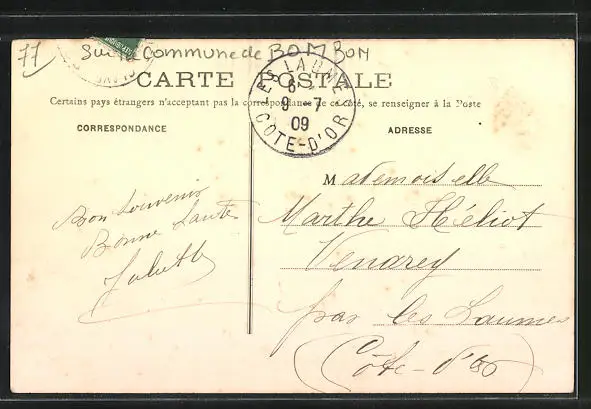 77
Sur la commune de BOMBON
CARTE POSTALE
Certains pays étrangers n'acceptant pas la correspondance de ce côté, se renseigner à la Poste
CORRESPONDANCE
ADRESSE
LES LAUMES
6
9 - 7
09
COTE-D'OR
Bon Souvenir
Bonne Santé
Juliette
Mademoiselle
Marthe Héliot
Venarey
par les Laumes
(Côte-d'Or)